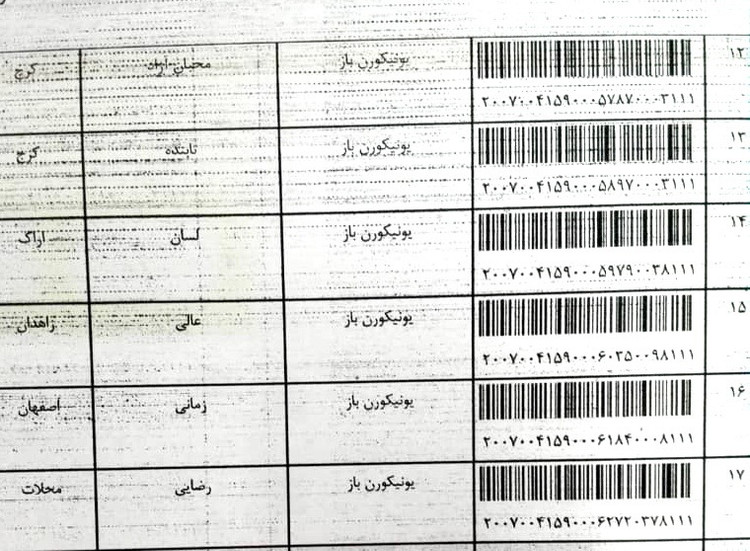 ۱۲ یونیکورن باز محبان اراد کرج
۲۰۰۷۰۰۴۱۵۹۰۰۰۵۷۸۷۰۰۰۳۱۱۱
۱۳ یونیکورن باز تابنده کرج
۲۰۰۷۰۰۴۱۵۹۰۰۰۵۸۹۷۰۰۰۳۱۱۱
۱۴ یونیکورن باز لسان اراک
۲۰۰۷۰۰۴۱۵۹۰۰۰۵۹۷۹۰۰۳۸۱۱۱
۱۵ یونیکورن باز عالی زاهدان
۲۰۰۷۰۰۴۱۵۹۰۰۰۶۰۳۵۰۰۹۸۱۱۱
۱۶ یونیکورن باز زمانی اصفهان
۲۰۰۷۰۰۴۱۵۹۰۰۰۶۱۸۴۰۰۰۸۱۱۱
۱۷ یونیکورن باز رضایی محلات
۲۰۰۷۰۰۴۱۵۹۰۰۰۶۲۷۲۰۳۷۸۱۱۱